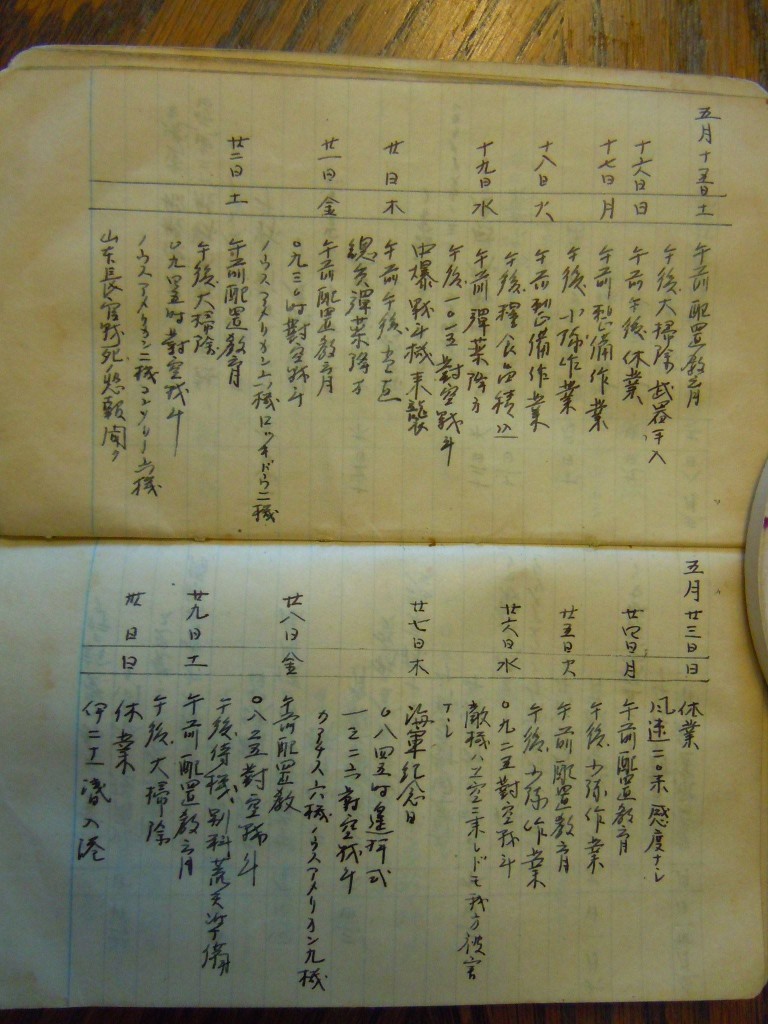 五月十五日 土 午前配置教育
午後大掃除 武器手入
十六日 日 午前午後休業
十七日 月 午前整備作業
午後小隊作業
十八日 火 午前整備作業
午後糧食積込
十九日 水 午前彈薬降方
午後一〇一五對空戦斗
中爆戦斗機来襲
廿日 木 午前午後当直
總兵彈薬降方
廿一日 金 午前配置教育
〇九三〇时對空戦斗
ノウスアメリカン六機ロッキード二機
廿二日 土 午前配置教育
午後大掃除
〇九四五时對空戦斗
ノウスアメリカン二機コンソリー六機
山本長官戦死ノ悲報聞ク
五月廿三日 日 休業
風速二〇米 感度ナシ
廿四日 月 午前配置教育
午後小隊作業
廿五日 火 午前配置教育
午後小隊作業
廿六日 水 〇九二五對空戦斗
敵機ハ上空ニ来レドモ我方被害
ナシ
廿七日 木 海軍紀念日
〇八四五时遥拝式
一二二六對空戦斗
六機ノウスアメリカン九機
廿八日 金 午前配置教
〇八二五對空戦斗
午後待機、別科荒天準備
廿九日 土 午前配置教育
午後大掃除
卅日 日 休業
伊二工潜入港